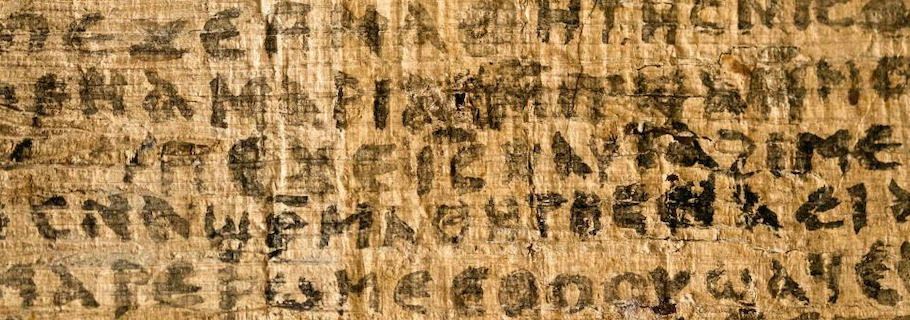 ⲡⲉϫⲉ ⲙⲙⲁⲑⲏⲧⲏⲥ ⲛⲓⲥ
ⲁⲣⲛⲁ ⲙⲁⲣⲓⲁⲙ
ⲡⲉϫⲉ ⲓⲥ ⲛⲁⲩ ⲧⲁϩⲓⲙⲉ
ⲥⲛⲁϣⲣⲙⲁⲑⲏⲧⲏⲥ ⲛⲁⲉⲓ
ⲙⲁⲣⲉⲣⲱⲙⲉ ⲉⲑⲟⲟⲩ ϣⲁϥⲉ